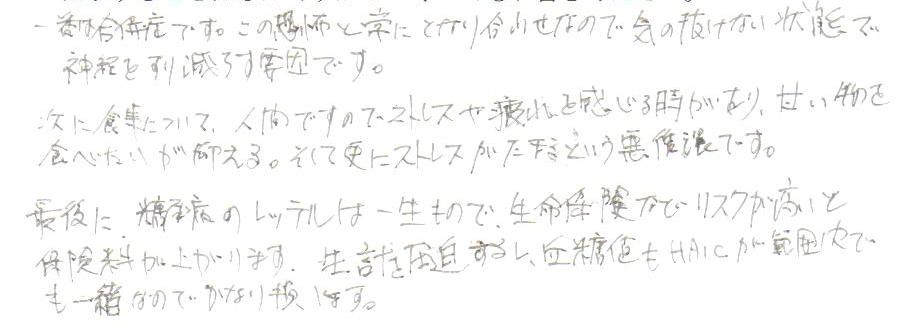 一番は合併症です。この恐怖と常にとなり合わせなので気の抜けない状態で
神経をすり減らす要因です。
次に食事について、人間ですのでストレスや疲れを感じる時があり、甘い物を
食べたいが抑える。そして更にストレスがたまるという悪循環です。
最後に、糖尿病のレッテルは一生もので、生命保険などリスクが高いと
保険料が上がります。生計を圧迫するし、血糖値もHA1Cが範囲内で
も一緒なのでかなり損します。